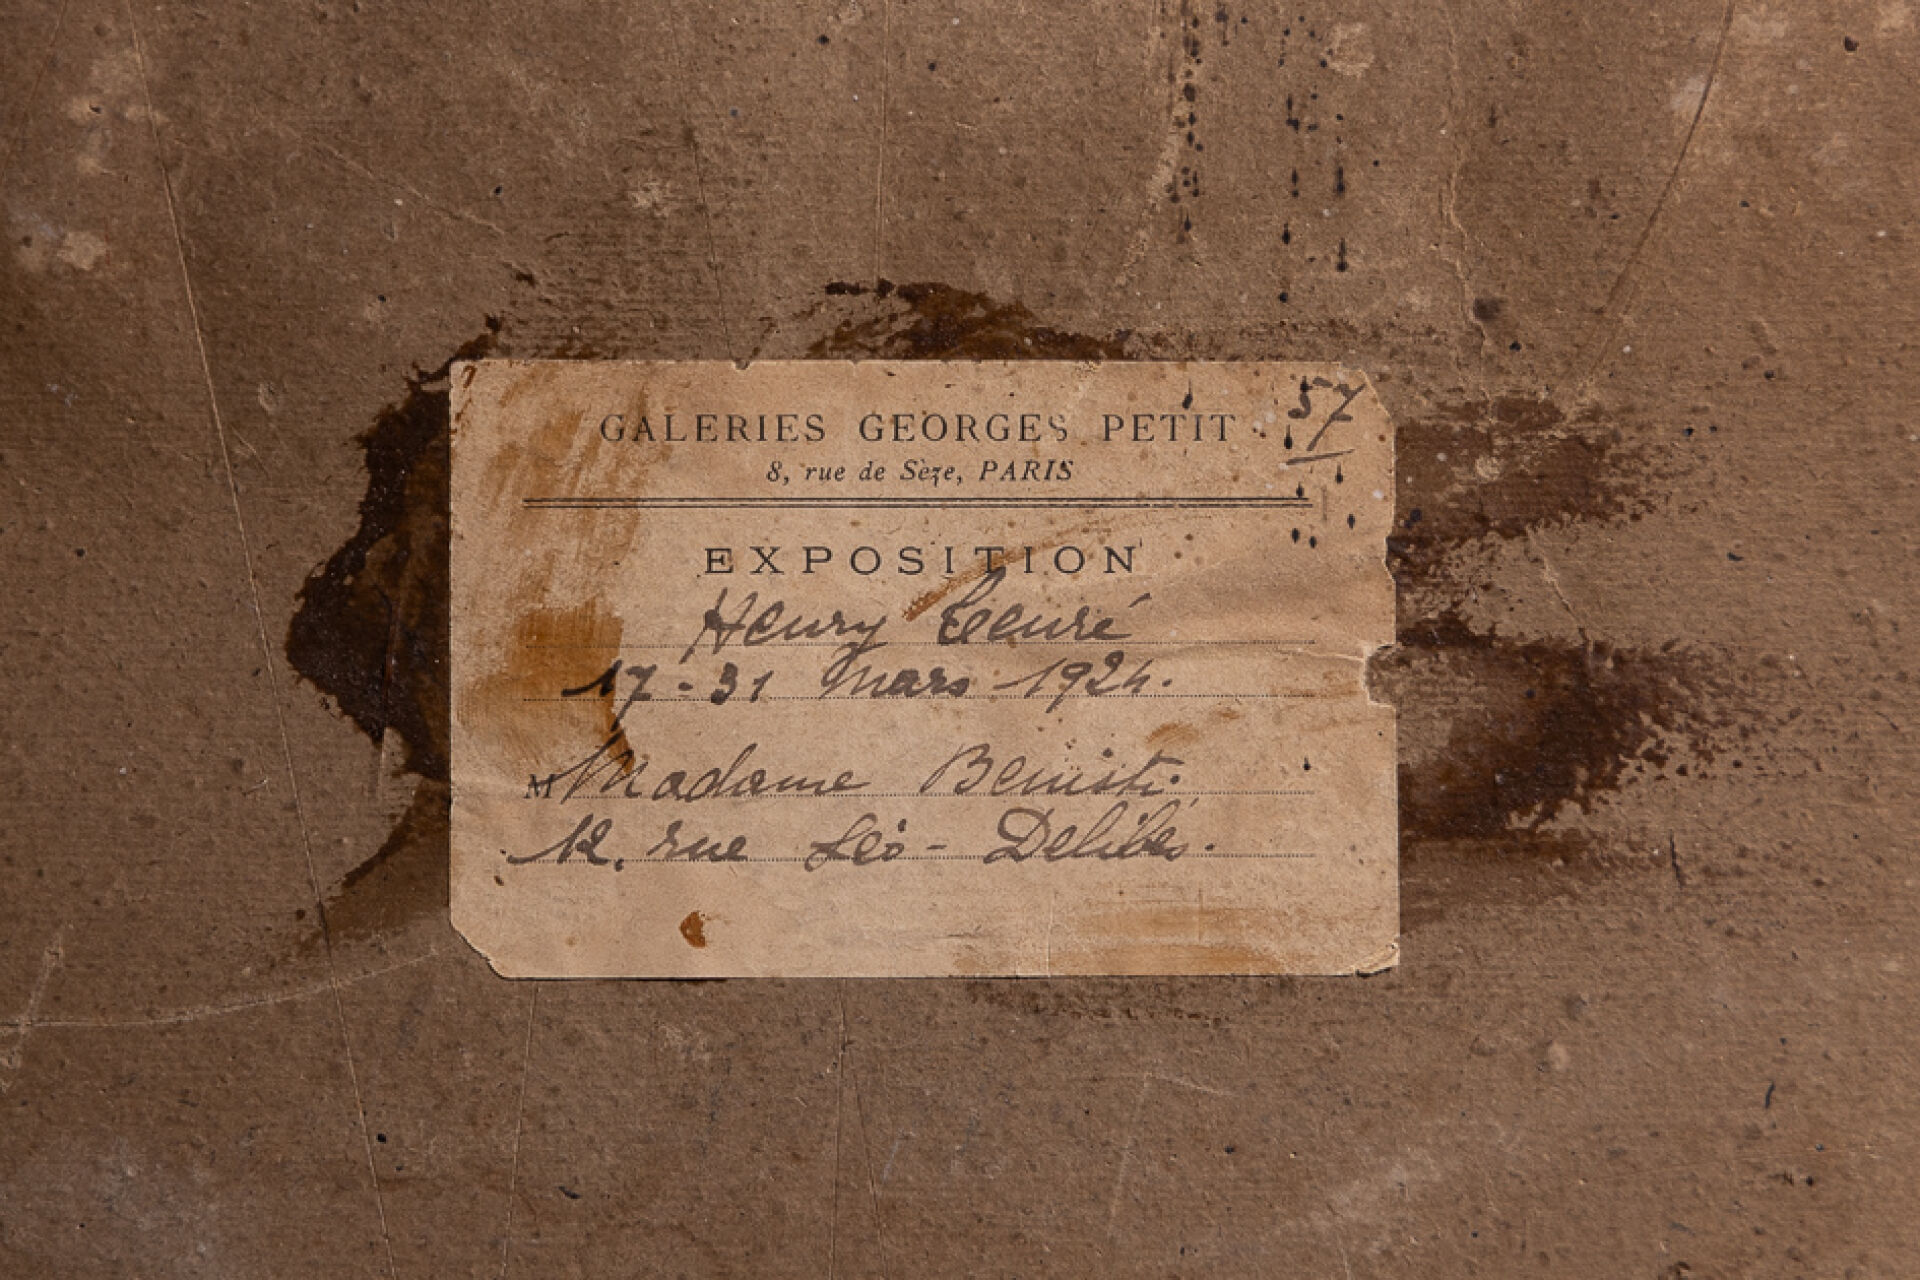 57
GALERIES GEORGES PETIT
8, rue de Sèze, PARIS
EXPOSITION
Henry Tenré
17-31 Mars 1924.
M Madame Benisti.
12, rue Léo-Delibes.